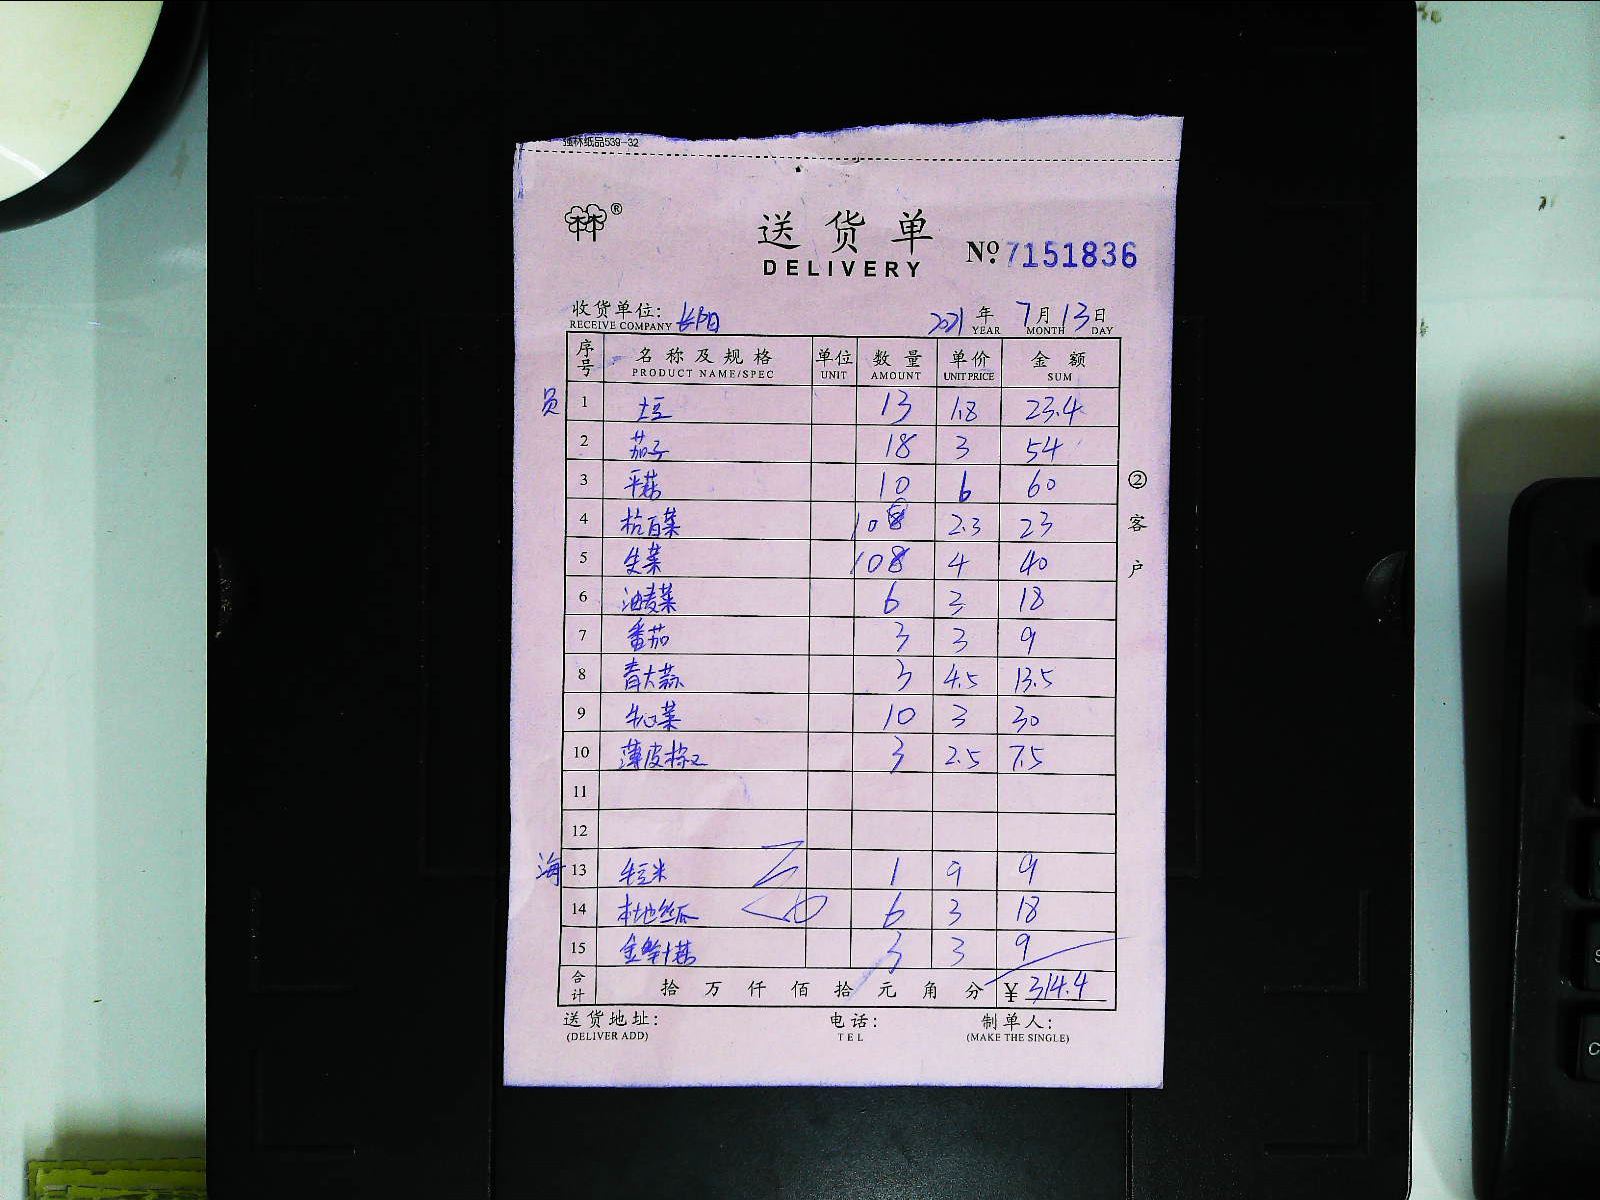 强林纸品539-32
林®
送货单
DELIVERY
No. 7151836
收货单位: 长阳 2021年 7月 13日
RECEIVE COMPANY YEAR MONTH DAY
序号 名称及规格 单位 数量 单价 金额
PRODUCT NAME/SPEC UNIT AMOUNT UNIT PRICE SUM
员 1 土豆 13 1.8 23.4
2 茄子 18 3 54
3 平菇 10 6 60
4 杭白菜 10 2.3 23
5 生菜 10 4 40
6 油麦菜 6 3 18
7 番茄 3 3 9
8 青大蒜 3 4.5 13.5
9 牛心菜 10 3 30
10 薄皮椒 3 2.5 7.5
11
12
海 13 毛豆米 1 9 9
14 本地丝瓜 6 3 18
15 金针菇 3 3 9
合计 拾 万 仟 佰 拾 元 角 分 ¥ 314.4
送货地址: 电话: 制单人:
(DELIVER ADD) TEL (MAKE THE SINGLE)
②客户